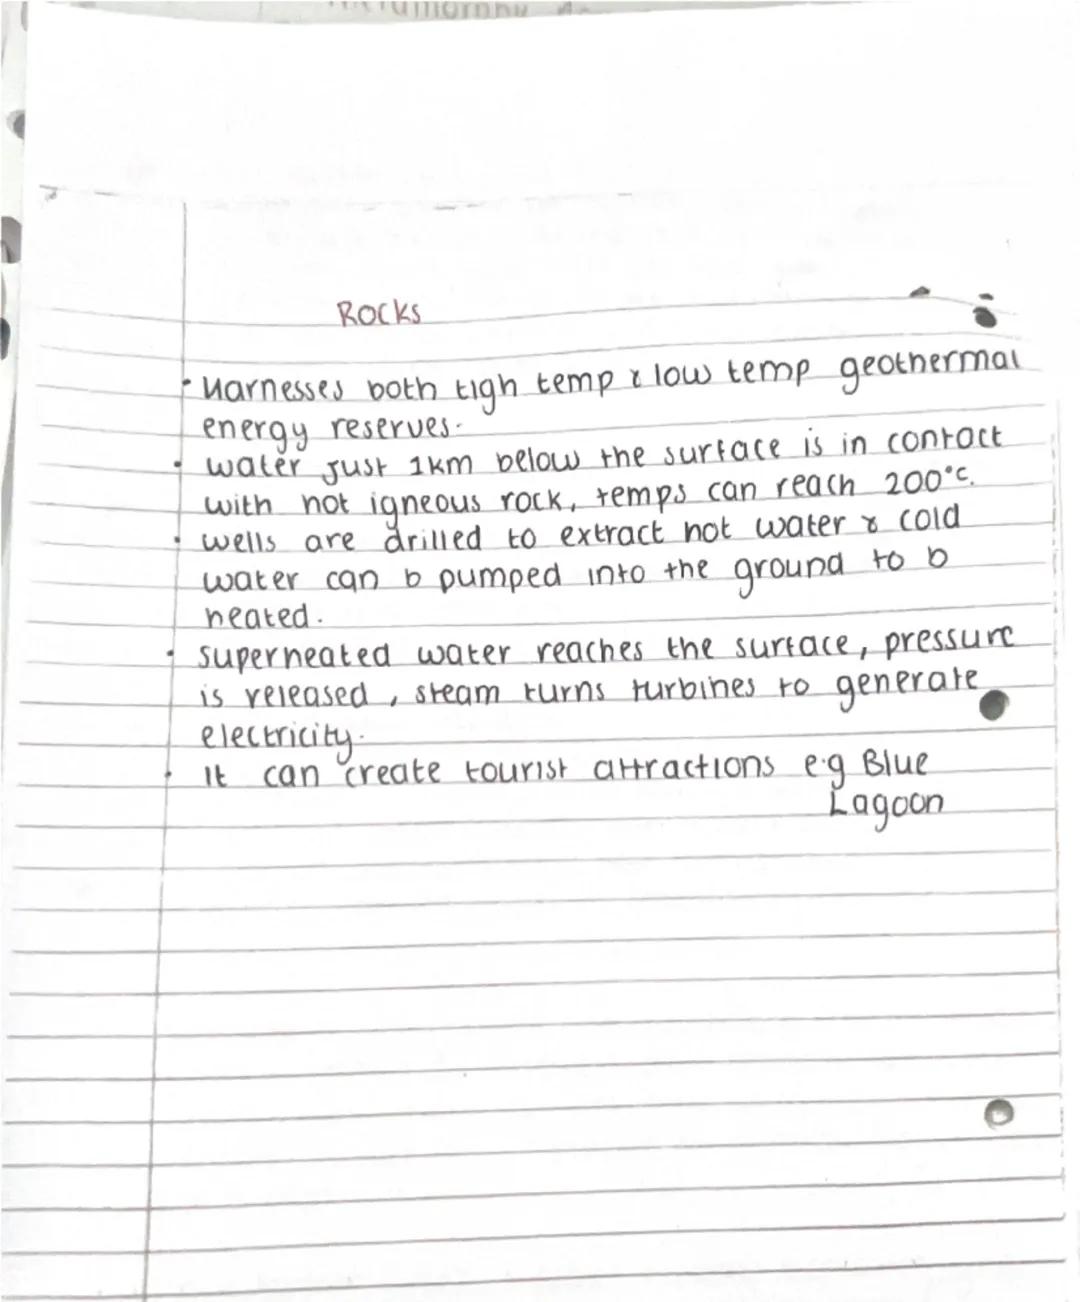 Rocks
• Harnesses both tigh temp & low temp geothermal
energy reserves.
• water just 1km below the surface is in contact
with hot igneous rock, temps can reach 200°C.
• wells are drilled to extract hot water & cold
water can b pumped into the ground to b
heated.
• superheated water reaches the surface, pressure
is released, steam turns turbines to generate
electricity.
• It can create tourist attractions e.g Blue
Lagoon